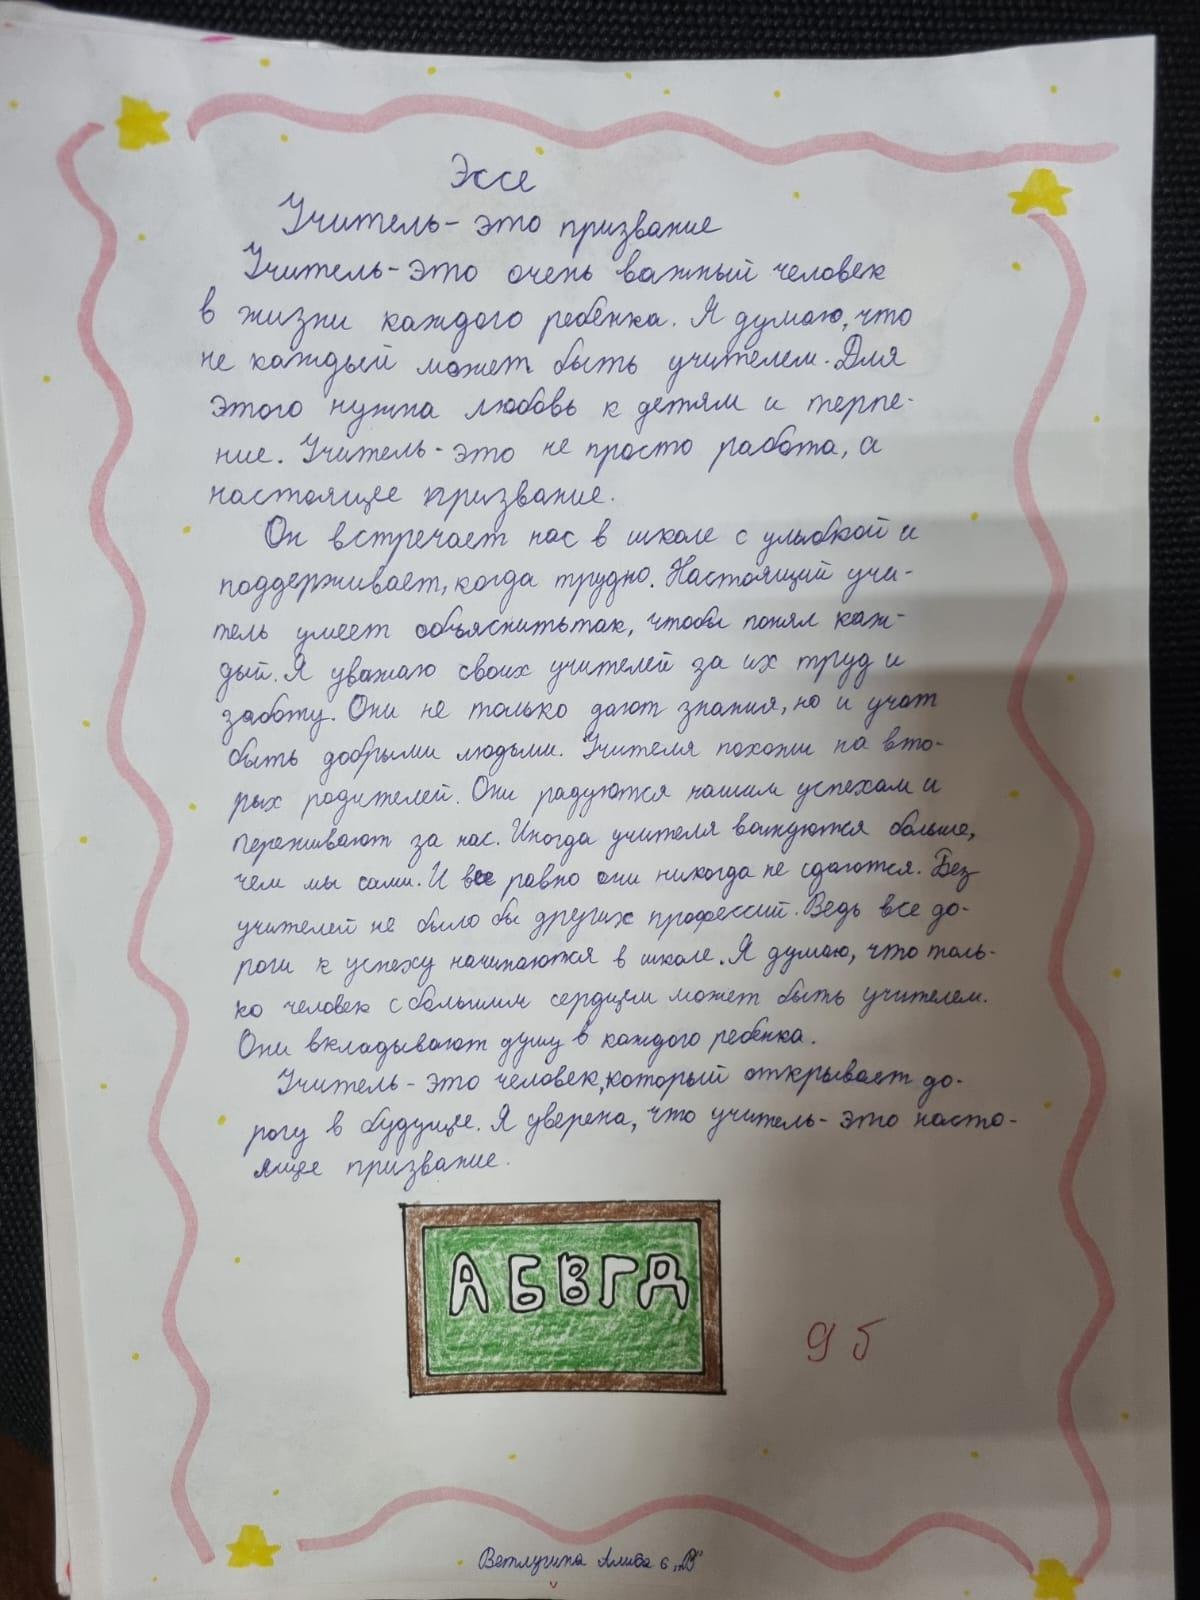 Эссе
Учитель - это призвание
Учитель - это очень важный человек
в жизни каждого ребёнка. Я думаю, что
не каждый может быть учителем. Для
этого нужна любовь к детям и терпе-
ние. Учитель - это не просто работа, а
настоящее призвание.
Он встречает нас в школе с улыбкой и
поддерживает, когда трудно. Настоящий учи-
тель умеет объяснить так, чтобы понял каж-
дый. Я уважаю своих учителей за их труд и
заботу. Они не только дают знания, но и учат
быть добрыми людьми. Учителя похожи на вто-
рых родителей. Они радуются нашим успехам и
переживают за нас. Иногда учителя волнуются больше,
чем мы сами. И все равно они никогда не сдаются. Без
учителей не было бы других профессий. Ведь все до-
роги к успеху начинаются в школе. Я думаю, что толь-
ко человек с большим сердцем может быть учителем.
Они вкладывают душу в каждого ребёнка.
Учитель - это человек, который открывает до-
рогу в будущее. Я уверена, что учитель - это насто-
ящее призвание.
АБВГД
9 б
Ветлугина 6 „В"